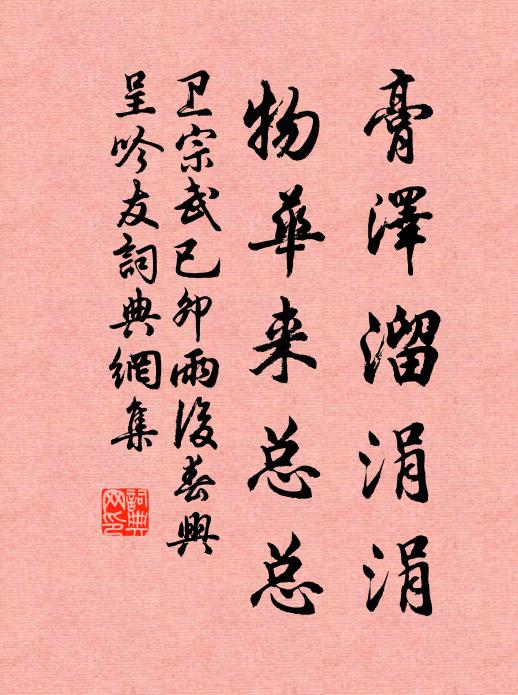 膏澤溜涓涓
物華来总总
卫宗武已卯雨後春興
呈吟友詞典網集
詞典网印